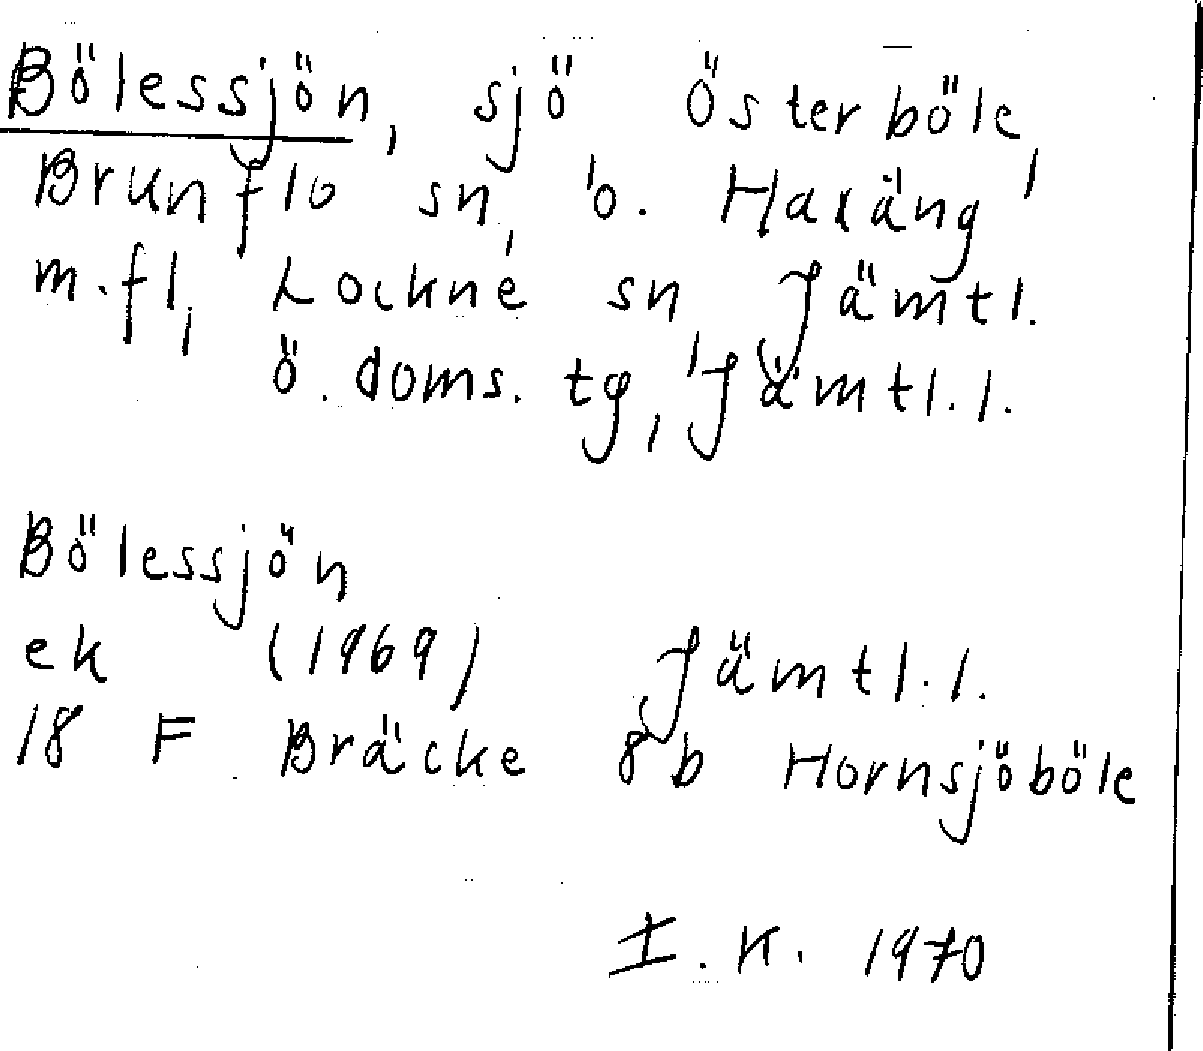 Bölessjön, sjö Österböle,
Brunflo sn, o. Haxäng
m.fl, Lockne sn, Jämtl.
ö. doms. tg, Jämtl.l.
Bölessjön
ek (1969) Jämtl.l.
18 F Bräcke 8 b Hornsjöböle
I. K. 1970